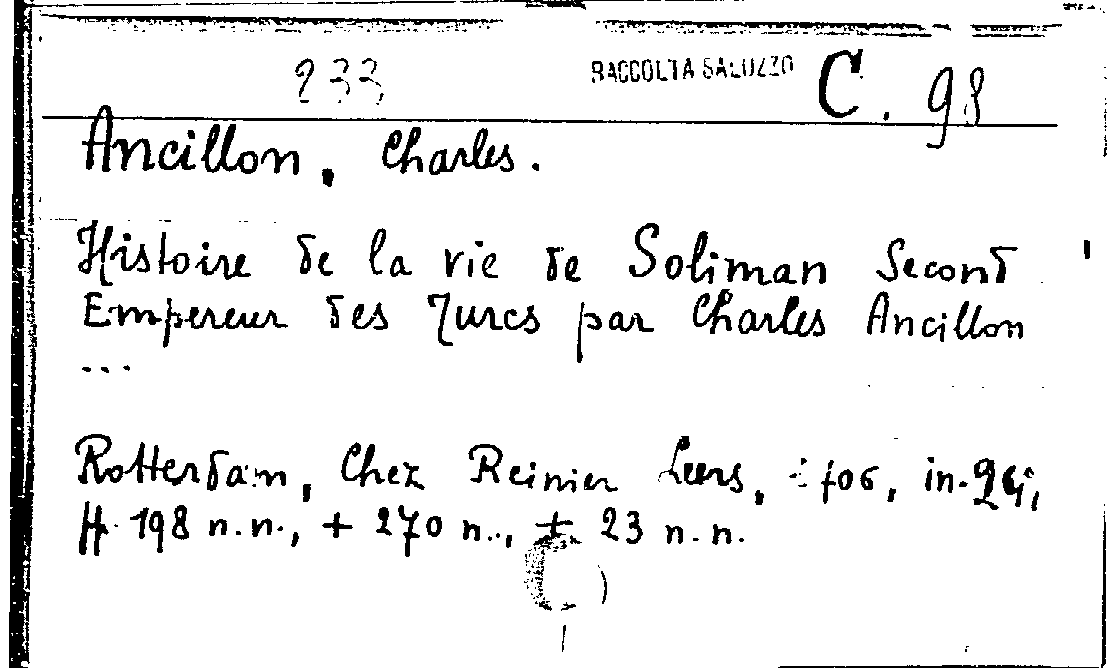 233 RACCOLTA SALUZZO C. 98
Ancillon, Charles.
Histoire de la vie de Soliman Second
Empereur des Turcs par Charles Ancillon
...
Rotterdam, Chez Reinier Leers, 1706, in-24i,
pp. 198 n.n., + 270 n., + 23 n.n.
C